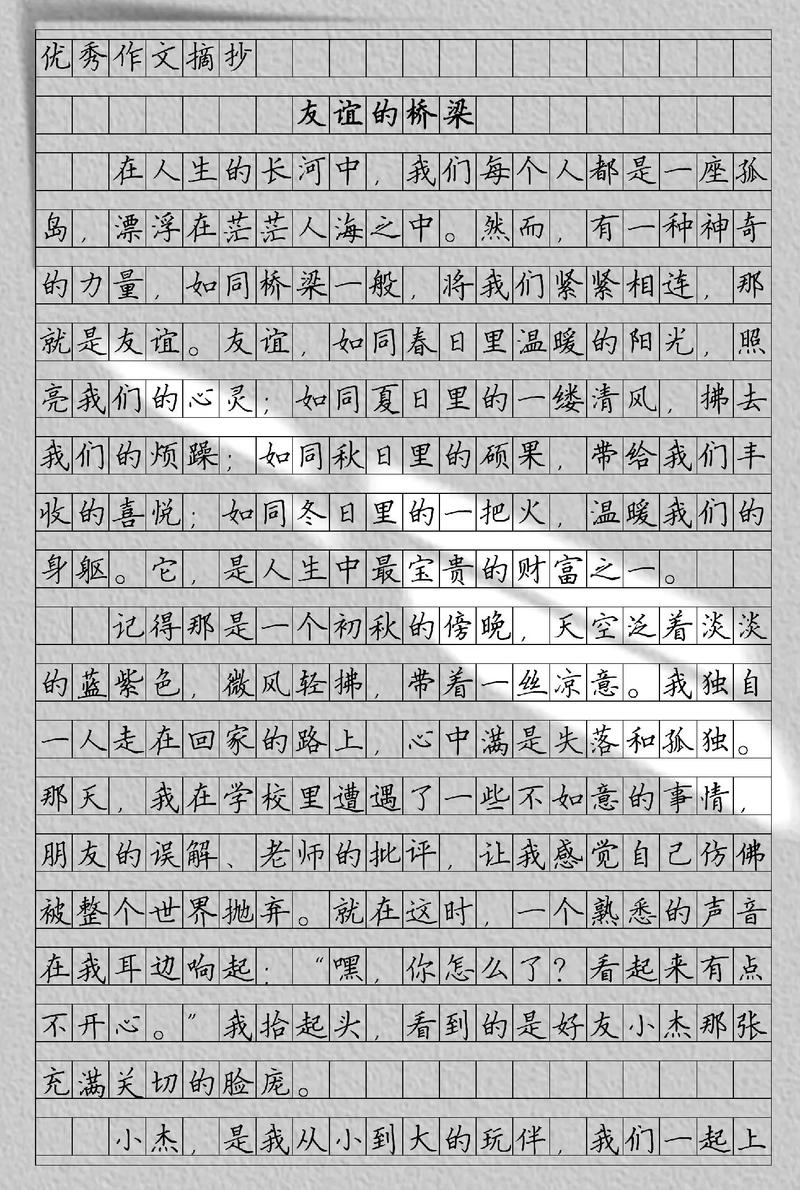 优秀作文摘抄
友谊的桥梁
在人生的长河中，我们每个人都是一座孤
岛，漂浮在茫茫人海之中。然而，有一种神奇
的力量，如同桥梁一般，将我们紧紧相连，那
就是友谊。友谊，如同春日里温暖的阳光，照
亮我们的心灵；如同夏日里的一缕清风，拂去
我们的烦躁；如同秋日里的硕果，带给我们丰
收的喜悦；如同冬日里的一把火，温暖我们的
身躯。它，是人生中最宝贵的财富之一。
记得那是一个初秋的傍晚，天空泛着淡淡
的蓝紫色，微风轻拂，带着一丝凉意。我独自
一人走在回家的路上，心中满是失落和孤独。
那天，我在学校里遭遇了一些不如意的事情，
朋友的误解、老师的批评，让我感觉自己仿佛
被整个世界抛弃。就在这时，一个熟悉的声音
在我耳边响起：“嘿，你怎么了？看起来有点
不开心。”我抬起头，看到的是好友小杰那张
充满关切的脸庞。
小杰，是我从小到大的玩伴，我们一起上